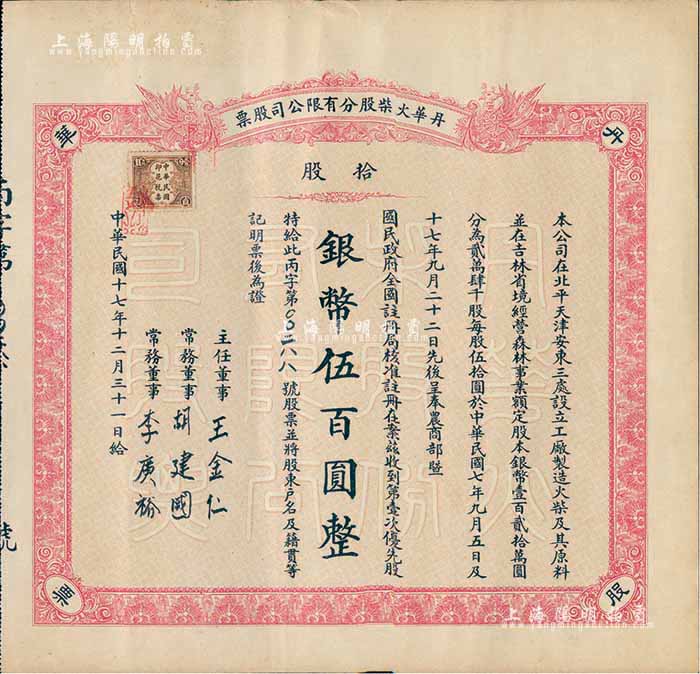 上海陽明拍賣
www.yangmingauction.com
丹華火柴股分有限公司股票
丹
華
拾股
中華民國
印花稅票
本公司在北平天津安東三處設立工廠製造火柴及其原料
並在吉林省境經營森林事業額定股本銀幣壹百貳拾萬圓
分為貳萬肆千股每股伍拾圓於中華民國七年九月五日及
十七年九月二十二日先後呈奉農商部暨
國民政府全國註冊局核准註冊在案茲收到第壹次優先股
銀幣伍百圓整
特給此丙字第 號股票並將股東戶名及籍貫等
記明票後為證
主任董事 王金仁
常務董事 胡建國
常務董事 李廣裕
中華民國十七年十二月三十一日給
股
票
上海陽明拍賣
www.yangmingauction.com
上海陽明拍賣
www.yangmingauction.com